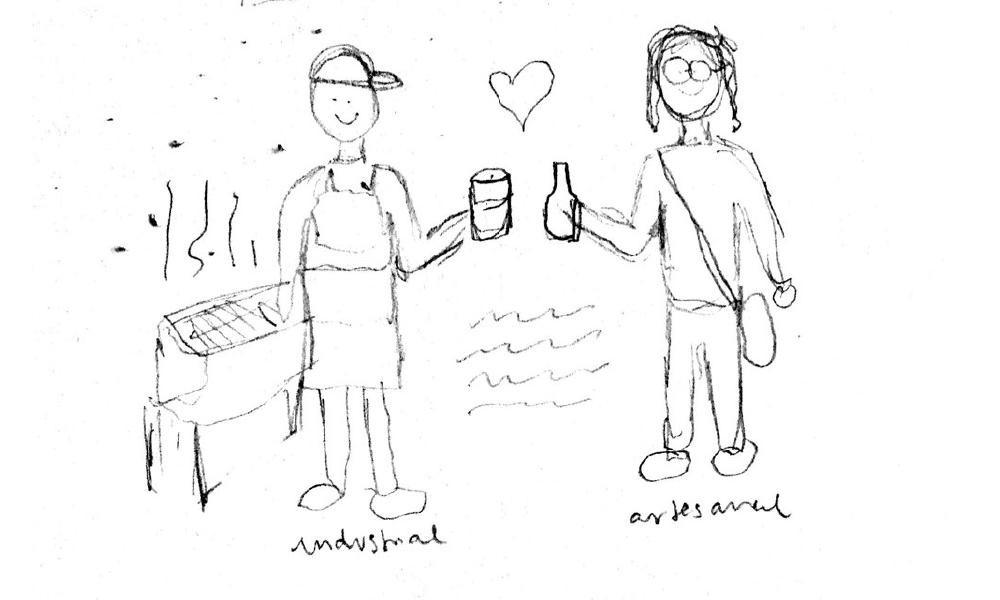 industrial
artesanal